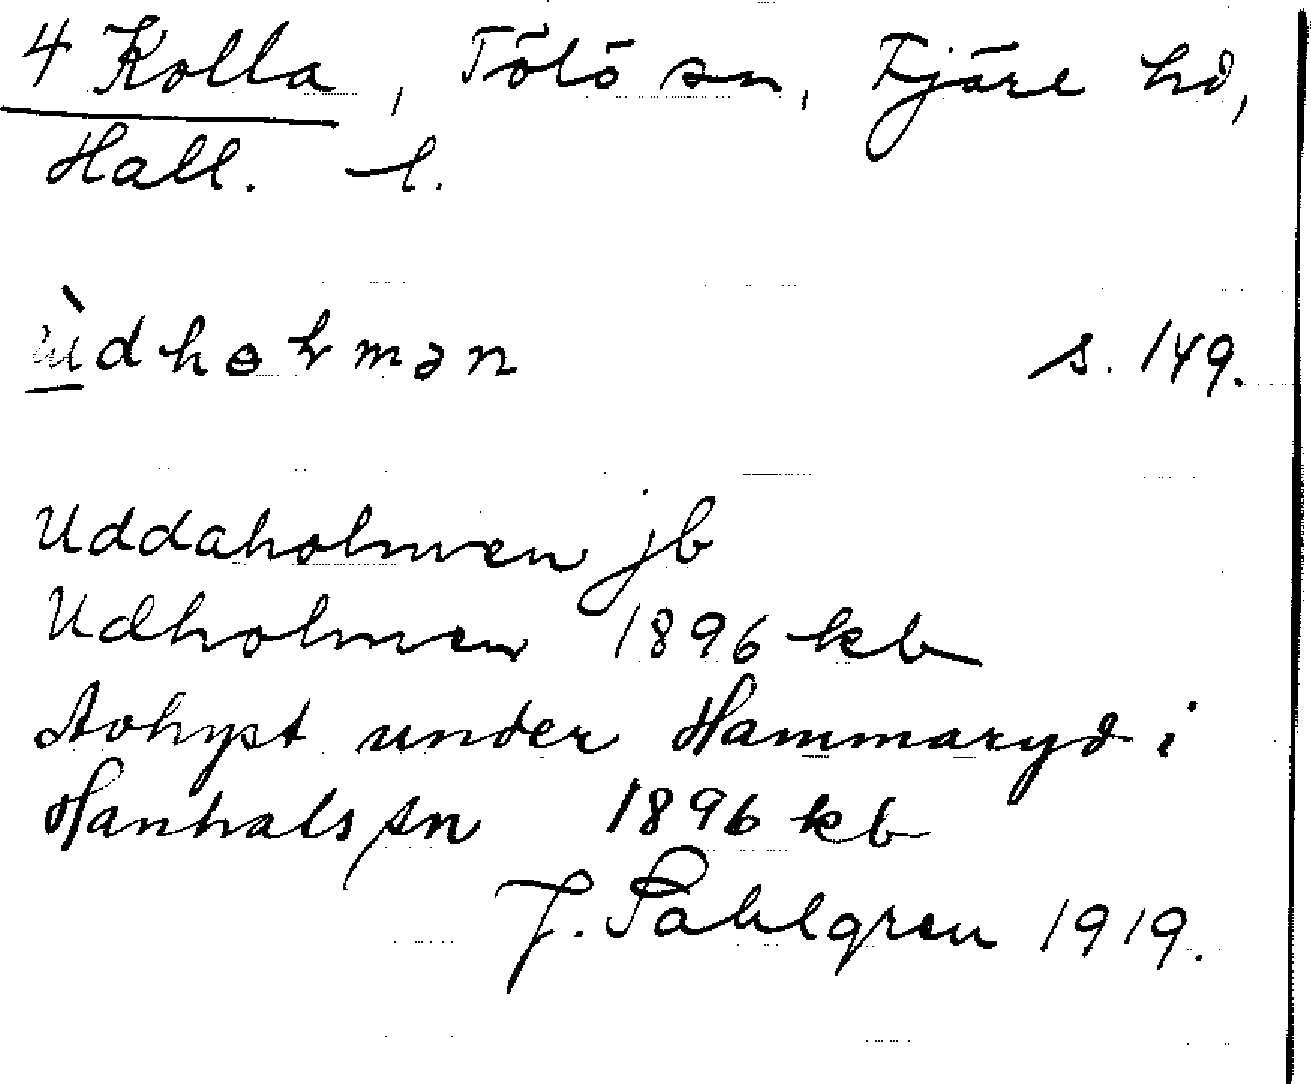 4 Kolla, Tölö sn, Fjäre hd,
Hall. l.
s. 149.
Uddaholmen jb
Udholmen 1896 kb
Avhyst under Hammaryd i
Hanhals sn 1896 kb
J. Sahlgren 1919.